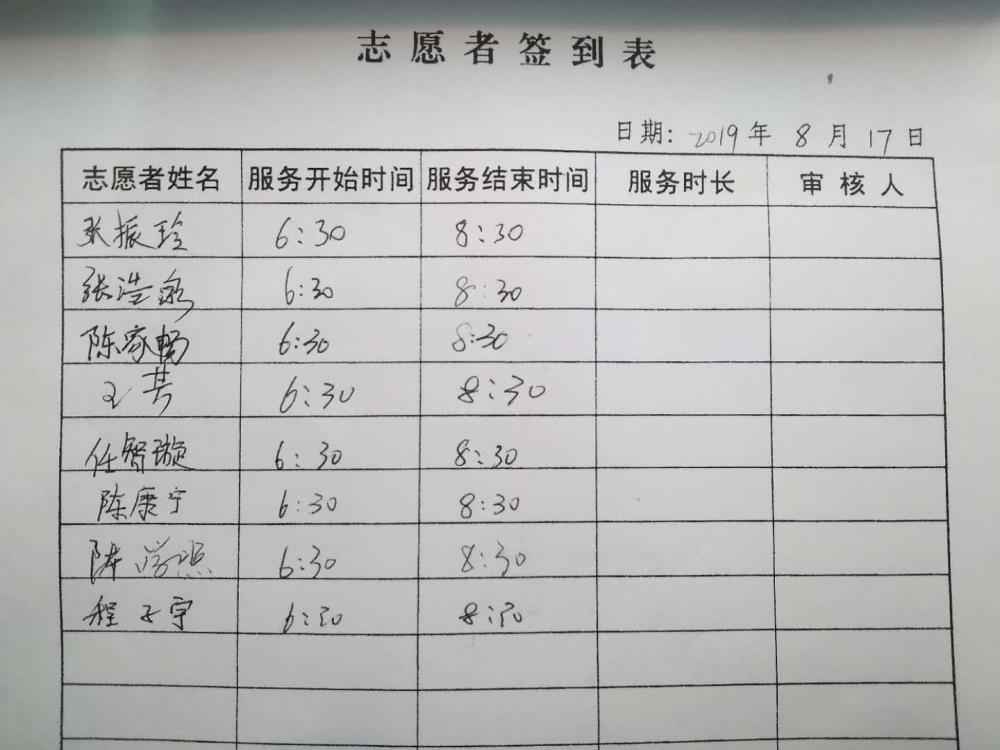 志愿者签到表
日期: 2019年 8月 17日
志愿者姓名 服务开始时间 服务结束时间 服务时长 审核人
张振玲 6:30 8:30
张浩 6:30 8:30
陈家畅 6:30 8:30
王芸 6:30 8:30
任智璇 6:30 8:30
陈康宁 6:30 8:30
陈学熙 6:30 8:30
程子宇 6:30 8:30